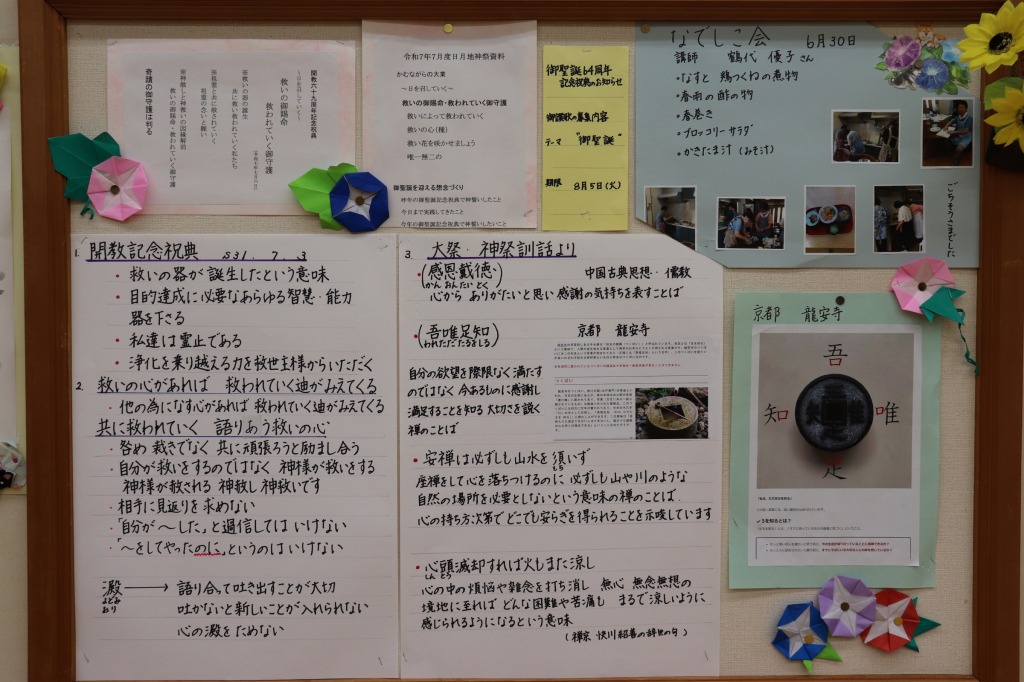 開教六十九周年記念祝典
～日を召していく～
救いの御賜命
救われていく御守護
救いの器の誕生
共に救い救われていく私たち
祖霊の念いと願い
救いの御賜命・救われていく御守護
奇蹟の御守護は利る
令和7年7月度日月地神祭資料
かむながらの大業
～日を召していく～
救いの御賜命・救われていく御守護
救いによって救われていく
救いの心(種)
救い花を咲かせましょう
唯一無二の
御聖誕を迎える想念づくり
昨年の御聖誕記念祝典で神誓いしたこと
今日まで実践してきたこと
今年の御聖誕記念祝典で神誓いしたいこと
御聖誕64周年
記念祝典のお知らせ
御讃歌の募集内容
テーマ "御聖誕"
期限 8月5日(火)
なでしこ会 6月30日
講師 鶴代 優子さん
・なすと 鶏つくねの煮物
・春雨の酢の物
・春巻き
・ブロッコリーサラダ
・かきたま汁 (みそ汁)
ごちそうさまでした
1. 開教記念祝典 S31. 7. 3
・救いの器が誕生したという意味
・目的達成に必要なあらゆる智慧・能力
器を下さる
・私達は霊止である
・浄化を乗り越える力を救世主様からいただく
2. 救いの心があれば 救われていく迪がみえてくる
・他の為になす心があれば 救われていく迪がみえてくる
共に救われていく 語りあう救いの心
・咎め 裁きでなく 共に頑張ろうと励まし合う
・自分が救いをするのではなく 神様が救いをする
神様が赦される 神赦し神救いです
・相手に見返りを求めない
・「自分が～した」と過信しては いけない
・「～をしてやったのに」というのは いけない
澱 → 語り合って吐き出すことが大切
よどみ
おり
吐かないと新しいことが入れられない
心の澱をためない
3. 大祭・神祭訓話より
・(感恩戴徳) 中国古典思想・儒教
かんおんたいとく
心から ありがたいと思い 感謝の気持ちを表すことば
・(吾唯足知) 京都 龍安寺
われただたるをしる
自分の欲望を際限なく満たす
のではなく 今あるものに感謝し
満足することを知る 大切さを説く
禅のことば
つくばい
・安禅は必ずしも山水を須いず
もち
座禅をして心を落ちつけるのに 必ずしも山や川のような
自然の場所を必要としないという意味の禅のことば
心の持ち方次第で どこでも安らぎを得られることを示唆しています
・心頭滅却すれば火もまた涼し
しんとう
心の中の煩悩や雑念を打ち消し 無心 無念無想の
境地に至れば どんな困難や苦痛も まるで涼しいように
感じられるようになるという意味
(禅宗 快川紹喜の辞世の句)
京都 龍安寺
吾
知
唯
足
✓うを知るとは？